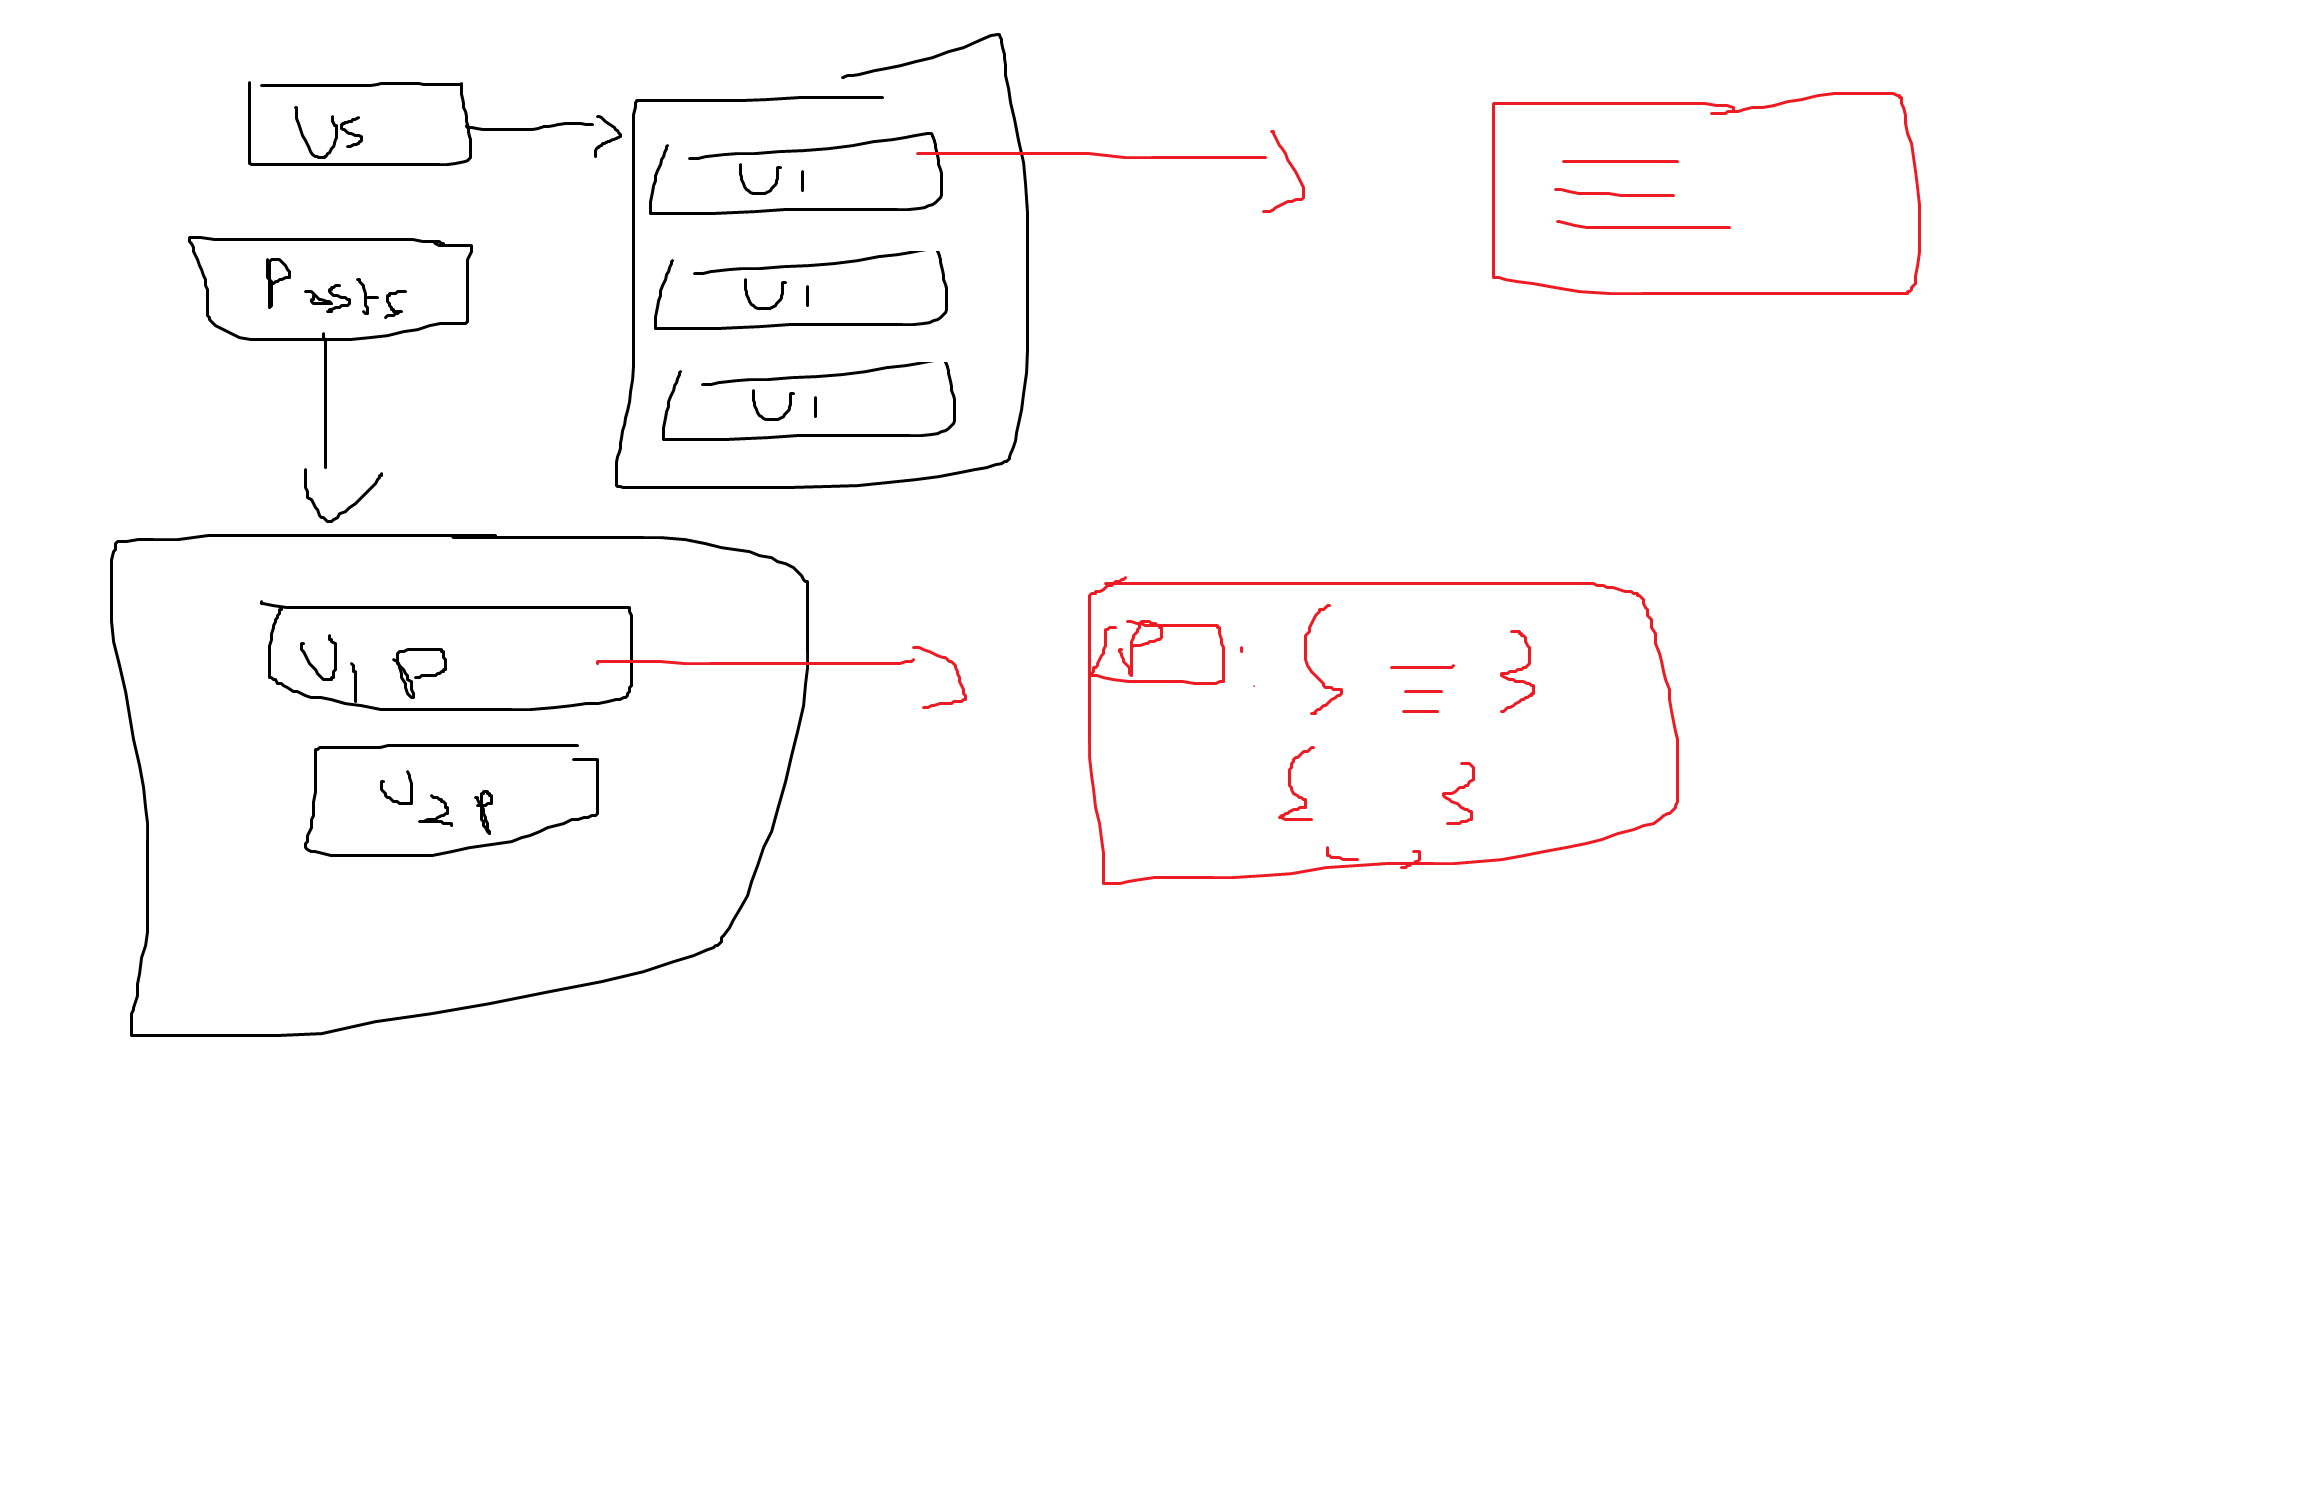 Us
U1
U1
U1
Posts
U1 P
U2 P
P : { }
{ }